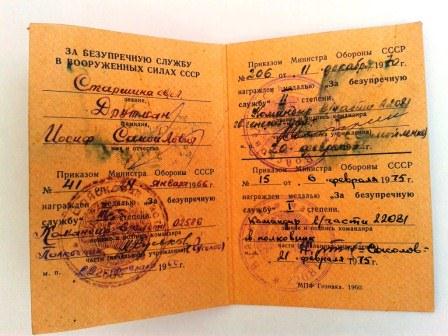 ЗА БЕЗУПРЕЧНУЮ СЛУЖБУ
В ВООРУЖЕННЫХ СИЛАХ СССР
Старшина
звание,
фамилия,
Иосиф Самойлович
имя и отчество
Приказом Министра Обороны СССР
№ 41 января 1966 г.
награжден медалью „За безупречную
службу" степени.
Командир 02506
звание и подпись командира
части (начальника учреждения)
м. п. 1966 г.
Приказом Министра Обороны СССР
№ 206 от 11 декабря 1970
награжден медалью „За безупречную
службу" II степени.
Командир части 22031
подпись командира
20 февраля
Приказом Министра Обороны СССР
№ 15 от 6 февраля 1975
награжден медалью „За безупречную
службу" I степени.
Командир части 22031
звание и подпись командира
полковник Соколов
части (начальника учреждения)
м. п. 21 февраля 1975 г.
МПФ Гознака. 1960.